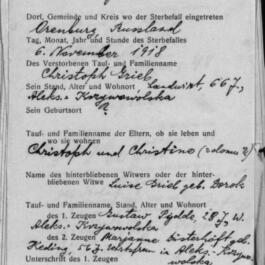 Dorf, Gemeinde und Kreis wo der Sterbefall eingetreten
Orenburg, Russland
Tag, Monat, Jahr und Stunde des Sterbefalles
6. November 1918
Des Verstorbenen Tauf- und Familienname
Christoph Grieb
Sein Stand, Alter und Wohnort Landwirt, 66 J.,
Aleks.- Korzywolska
Sein Geburtsort ?
Tauf- und Familienname der Eltern, ob sie leben und
wo sie wohnen
Christoph und Christine
Name des hinterbliebenen Witwers oder der hinter-
bliebenen Witwe Luise Grieb geb.
Tauf- und Familienname, Stand, Alter und Wohnort
des 1. Zeugen Gustaw 28 J. W.
Aleks.
des 2. Zeugen Marjanne
56 J. in Aleks.
Unterschrift des 1. Zeugen